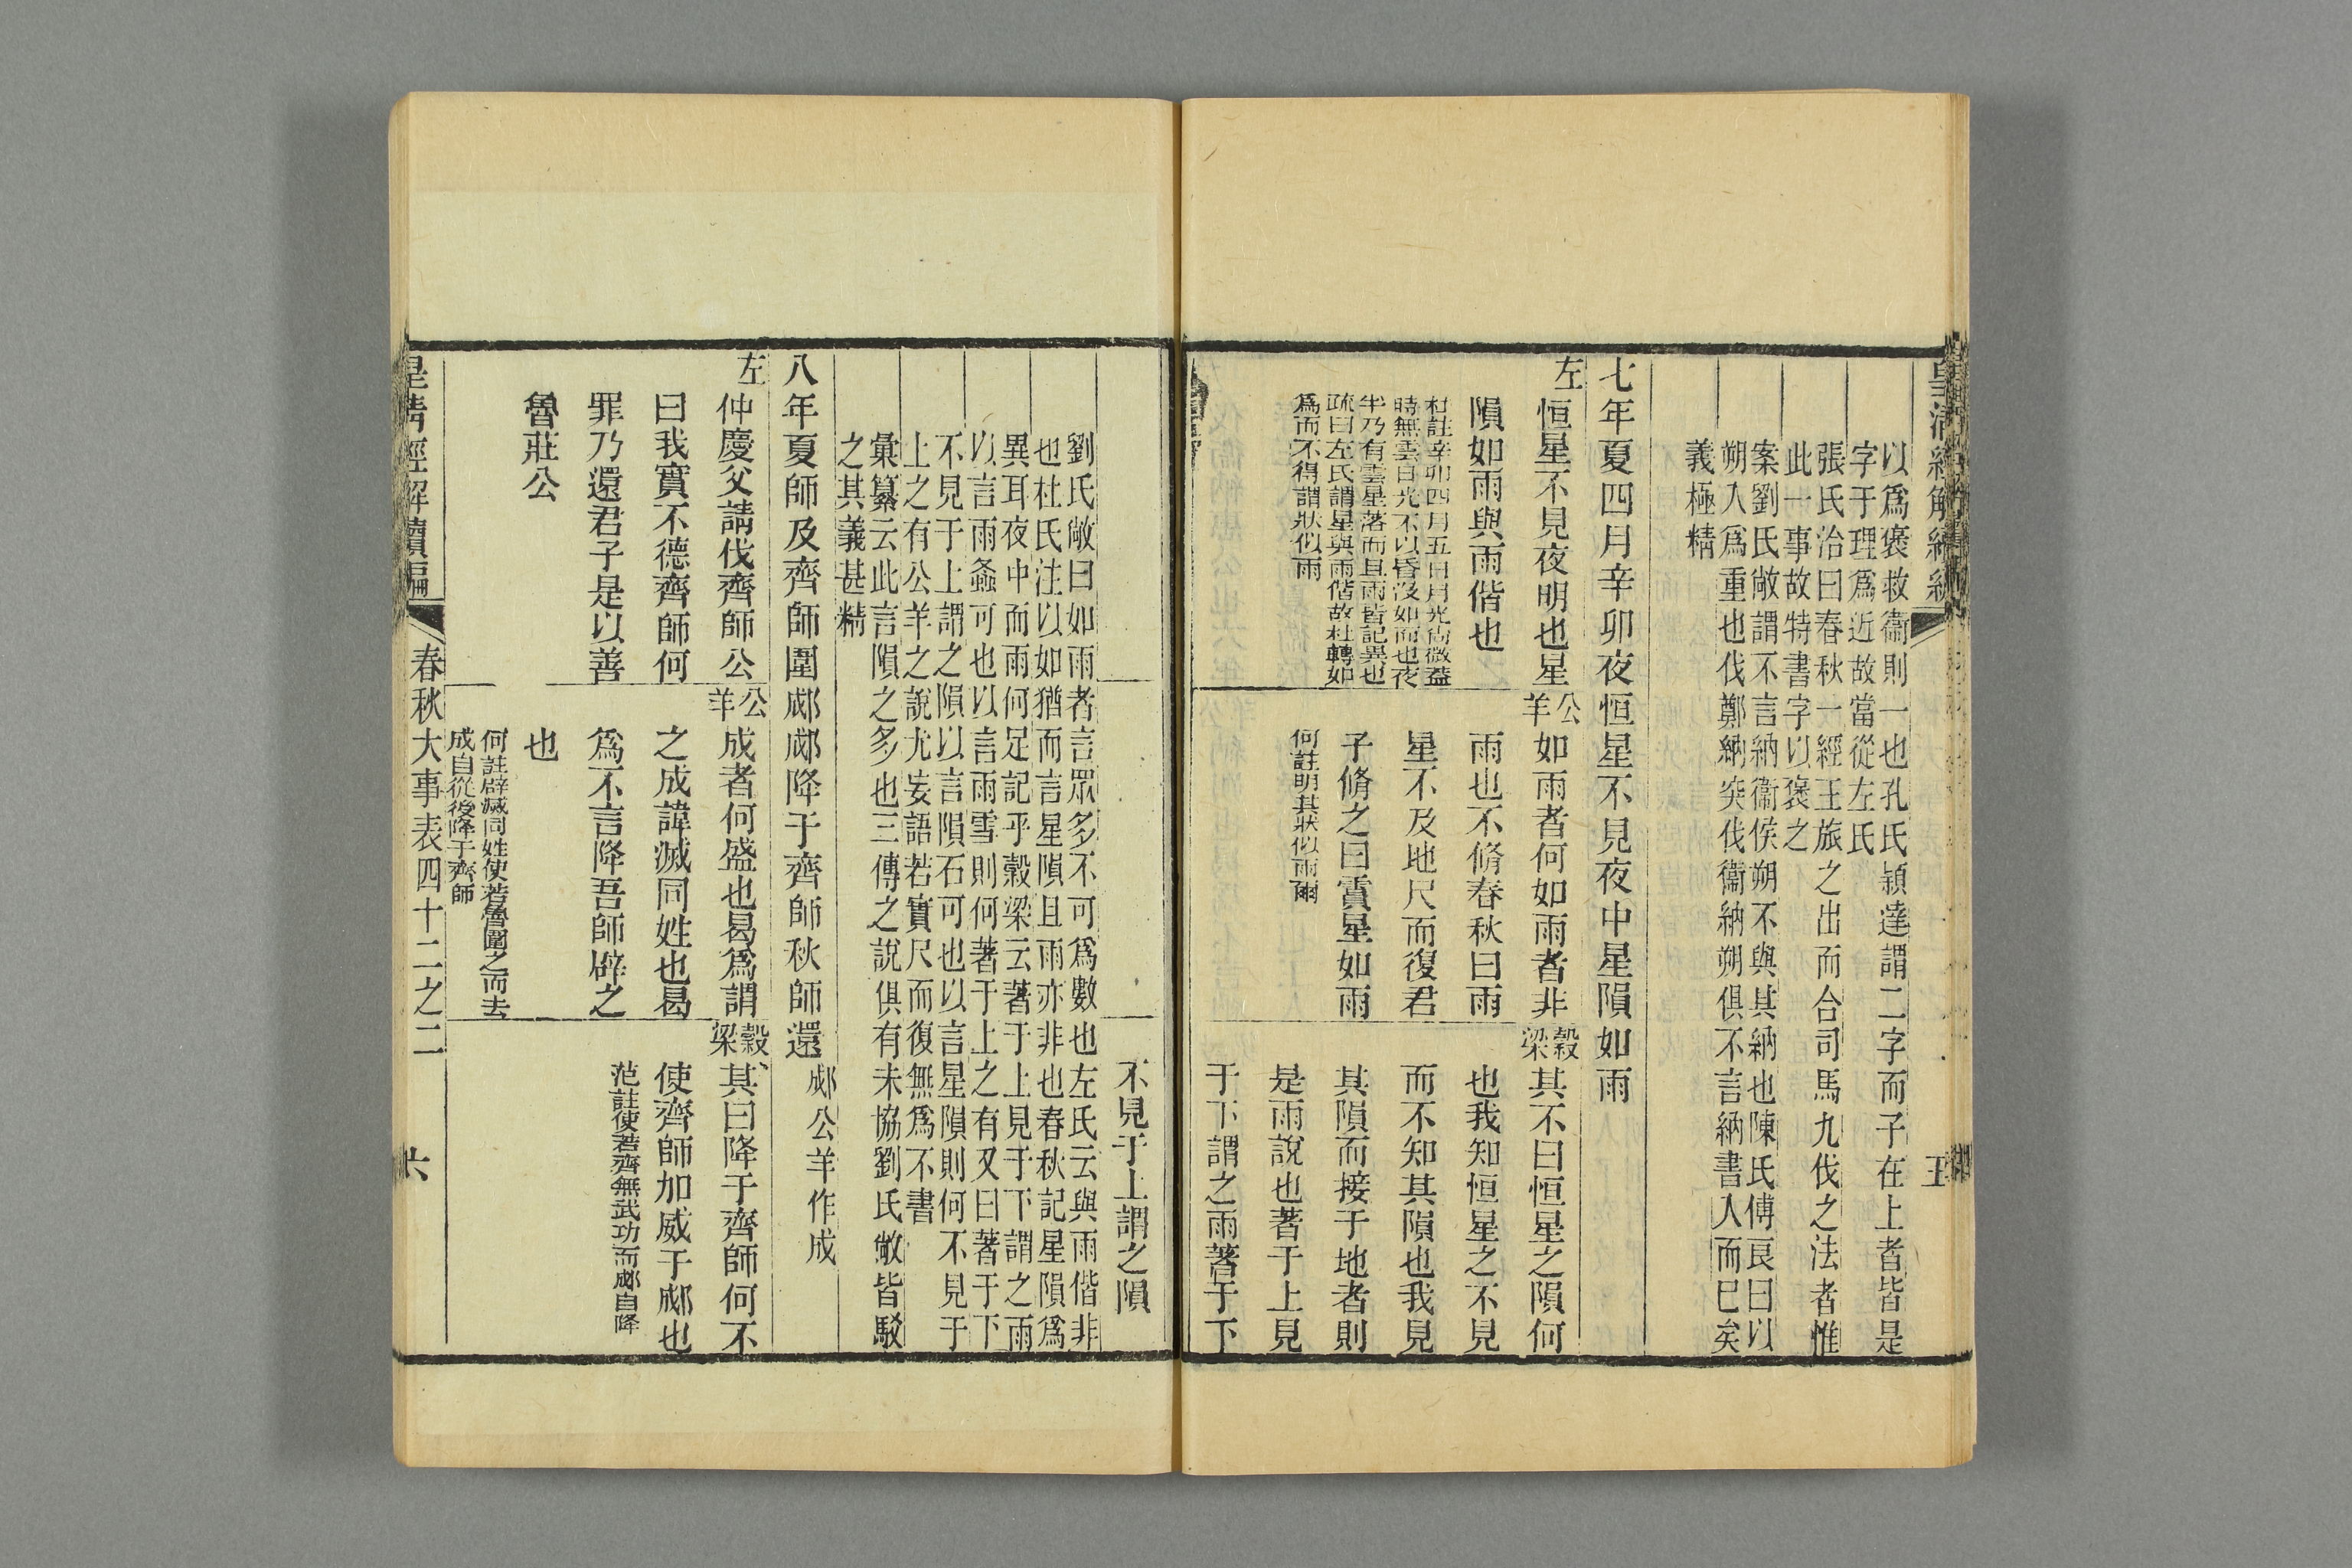 皇清經解續編
五
以爲褒救衞則一也孔氏穎達謂二字而子在上者皆是
字于理爲近故當從左氏
張氏洽曰春秋一經王旅之出而合司馬九伐之法者惟
此一事故特書字以褒之
案劉氏敞謂不言納衞侯朔不與其納也陳氏傅良曰以
朔入爲重也伐鄭納突伐衞納朔俱不言納書入而已矣
義極精
七年夏四月辛卯夜恒星不見夜中星隕如雨
左
恒星不見夜明也星
隕如雨與雨偕也
杜註辛卯四月五日月光尚微蓋
時無雲日光不以昏沒如而也夜
半乃有雲星落而且雨皆記異也
疏曰左氏謂星與雨偕故杜轉如
爲而不得謂狀似雨
公羊
如雨者何如雨者非
雨也不脩春秋曰雨
星不及地尺而復君
子脩之曰霣星如雨
何註明其狀似雨爾
穀梁
其不曰恒星之隕何
也我知恒星之不見
而不知其隕也我見
其隕而接于地者則
是雨說也著于上見
于下謂之雨著于下
不見于上謂之隕
劉氏敞曰如雨者言眾多不可爲數也左氏云與雨偕非
也杜氏注以如猶而言星隕且雨亦非也春秋記星隕爲
異耳夜中而雨何足記乎穀梁云著于上見于下謂之雨
以言雨螽可也以言雨雪則何著于上之有又曰著于下
不見于上謂之隕以言隕石可也以言星隕則何不見于
上之有公羊之說尤妄語若實尺而復無爲不書
彙纂云此言隕之多也三傳之說俱有未協劉氏敞皆駁
之其義甚精
八年夏師及齊師圍郕郕降于齊師秋師還
郕公羊作成
左
仲慶父請伐齊師公
曰我實不德齊師何
罪乃還君子是以善
魯莊公
公羊
成者何盛也曷爲謂
之成諱滅同姓也曷
爲不言降吾師辟之
也
何註辟滅同姓使若魯圍之而去
成自從後降于齊師
穀梁
其曰降于齊師何不
使齊師加威于郕也
范註使若齊無武功而郕自降
皇清經解續編
春秋大事表四十二之二
六